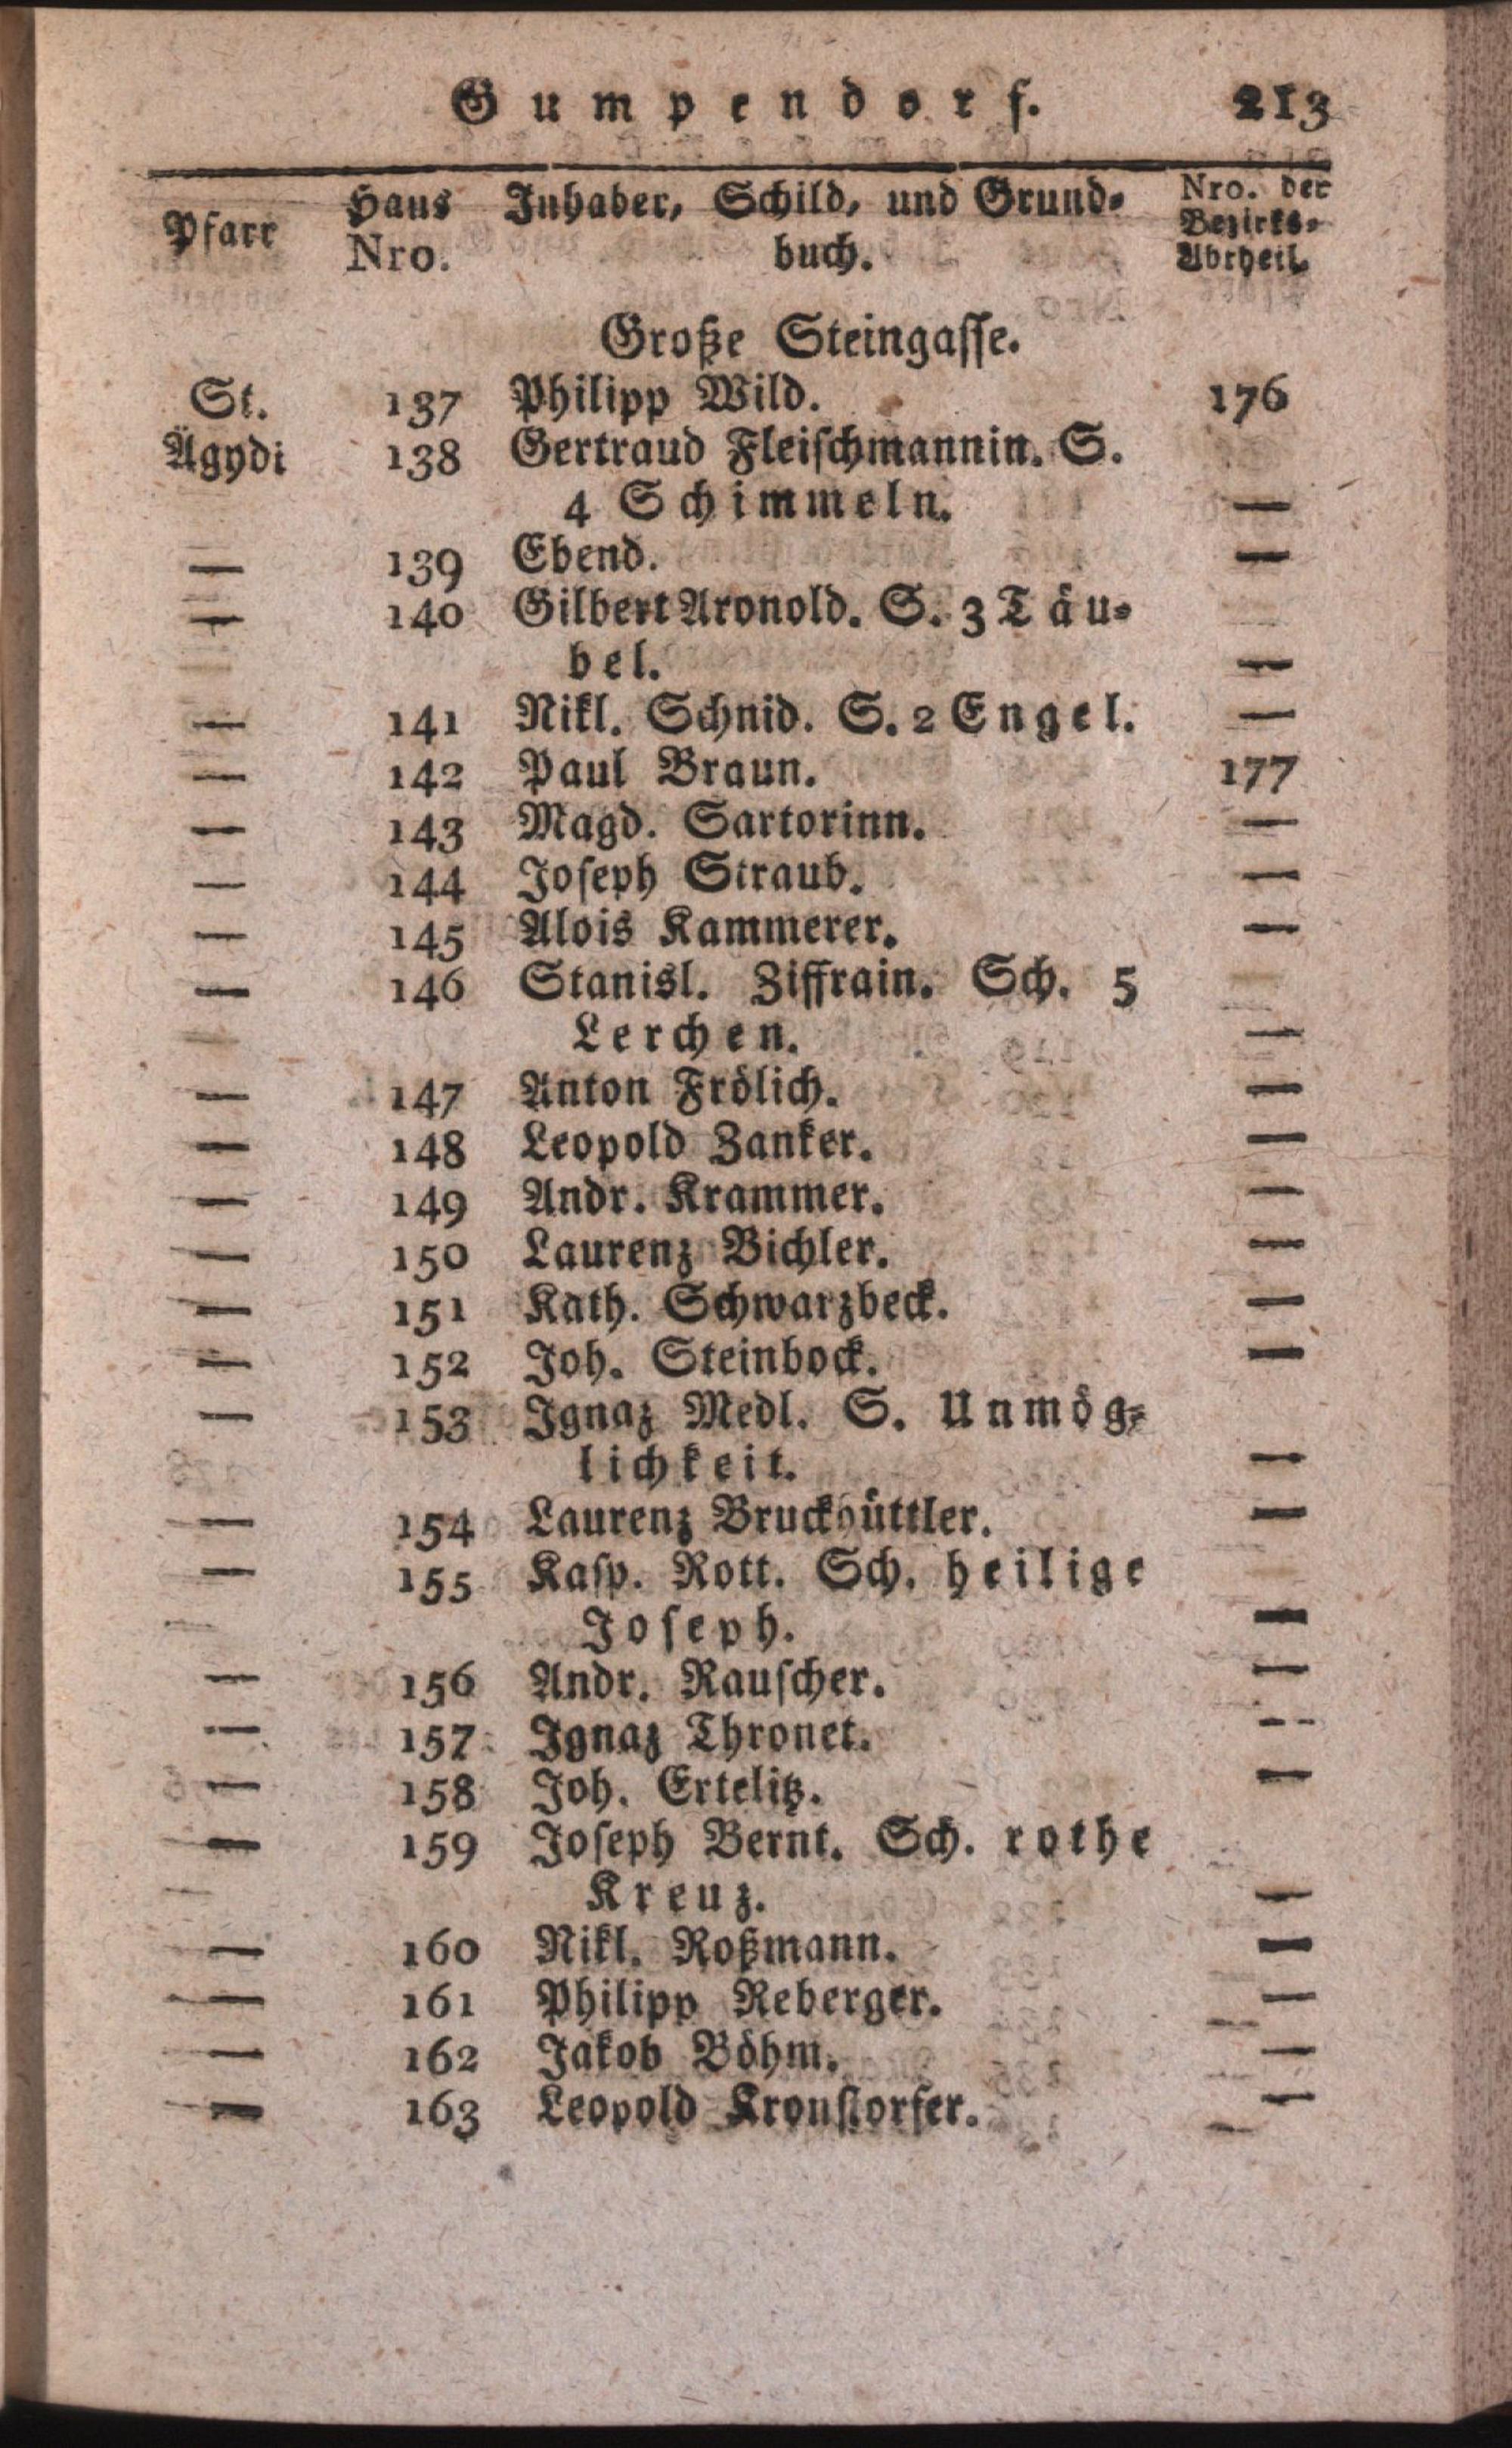 Gumpendorf. 213
Pfarr Haus Nro. Inhaber, Schild, und Grund-
buch. Nro. der Bezirks- Abtheil.
Große Steingasse.
St. 137 Philipp Wild. 176
Ägydi 138 Gertraud Fleischmannin. S.
4 Schimmeln. —
— 139 Ebend. —
— 140 Gilbert Aronold. S. 3 Täu-
bel. —
— 141 Nikl. Schnid. S. 2 Engel. —
— 142 Paul Braun. 177
— 143 Magd. Sartorinn. —
— 144 Joseph Straub. —
— 145 Alois Kammerer. —
— 146 Stanisl. Ziffrain. Sch. 5
Lerchen. —
— 147 Anton Frölich. —
— 148 Leopold Zanker. —
— 149 Andr. Krammer. —
— 150 Laurenz Bichler. —
— 151 Kath. Schwarzbeck. —
— 152 Joh. Steinbock. —
— 153 Ignaz Medl. S. Unmög-
lichkeit. —
— 154 Laurenz Bruckhüttler. —
— 155 Kasp. Rott. Sch. heilige
Joseph. —
— 156 Andr. Rauscher. —
— 157 Ignaz Thronet. —
— 158 Joh. Ertelitz. —
— 159 Joseph Bernt. Sch. rothe
Kreuz. —
— 160 Nikl. Roßmann. —
— 161 Philipp Reberger. —
— 162 Jakob Böhm. —
— 163 Leopold Kronstorfer. —